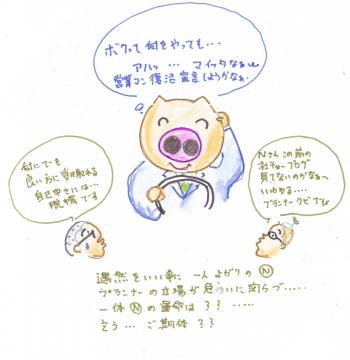 ボクって何をやっても・・・
アルッ … マイッタなぁ~
営業マン復活宣言しようかなぁ
何にでも
良いように受け取れる
自己中さには…
脱帽です
Nさんこの前の
社チョーブログ
見てないのかなぁ~
いわゆる….
プランナークビでしょ
偶然をいい事に 一人よがりのⓃ
プランナーの立場が危ういに関らづ…..
一体Ⓝの運命は？？ …..
そう … ご期体 ？？